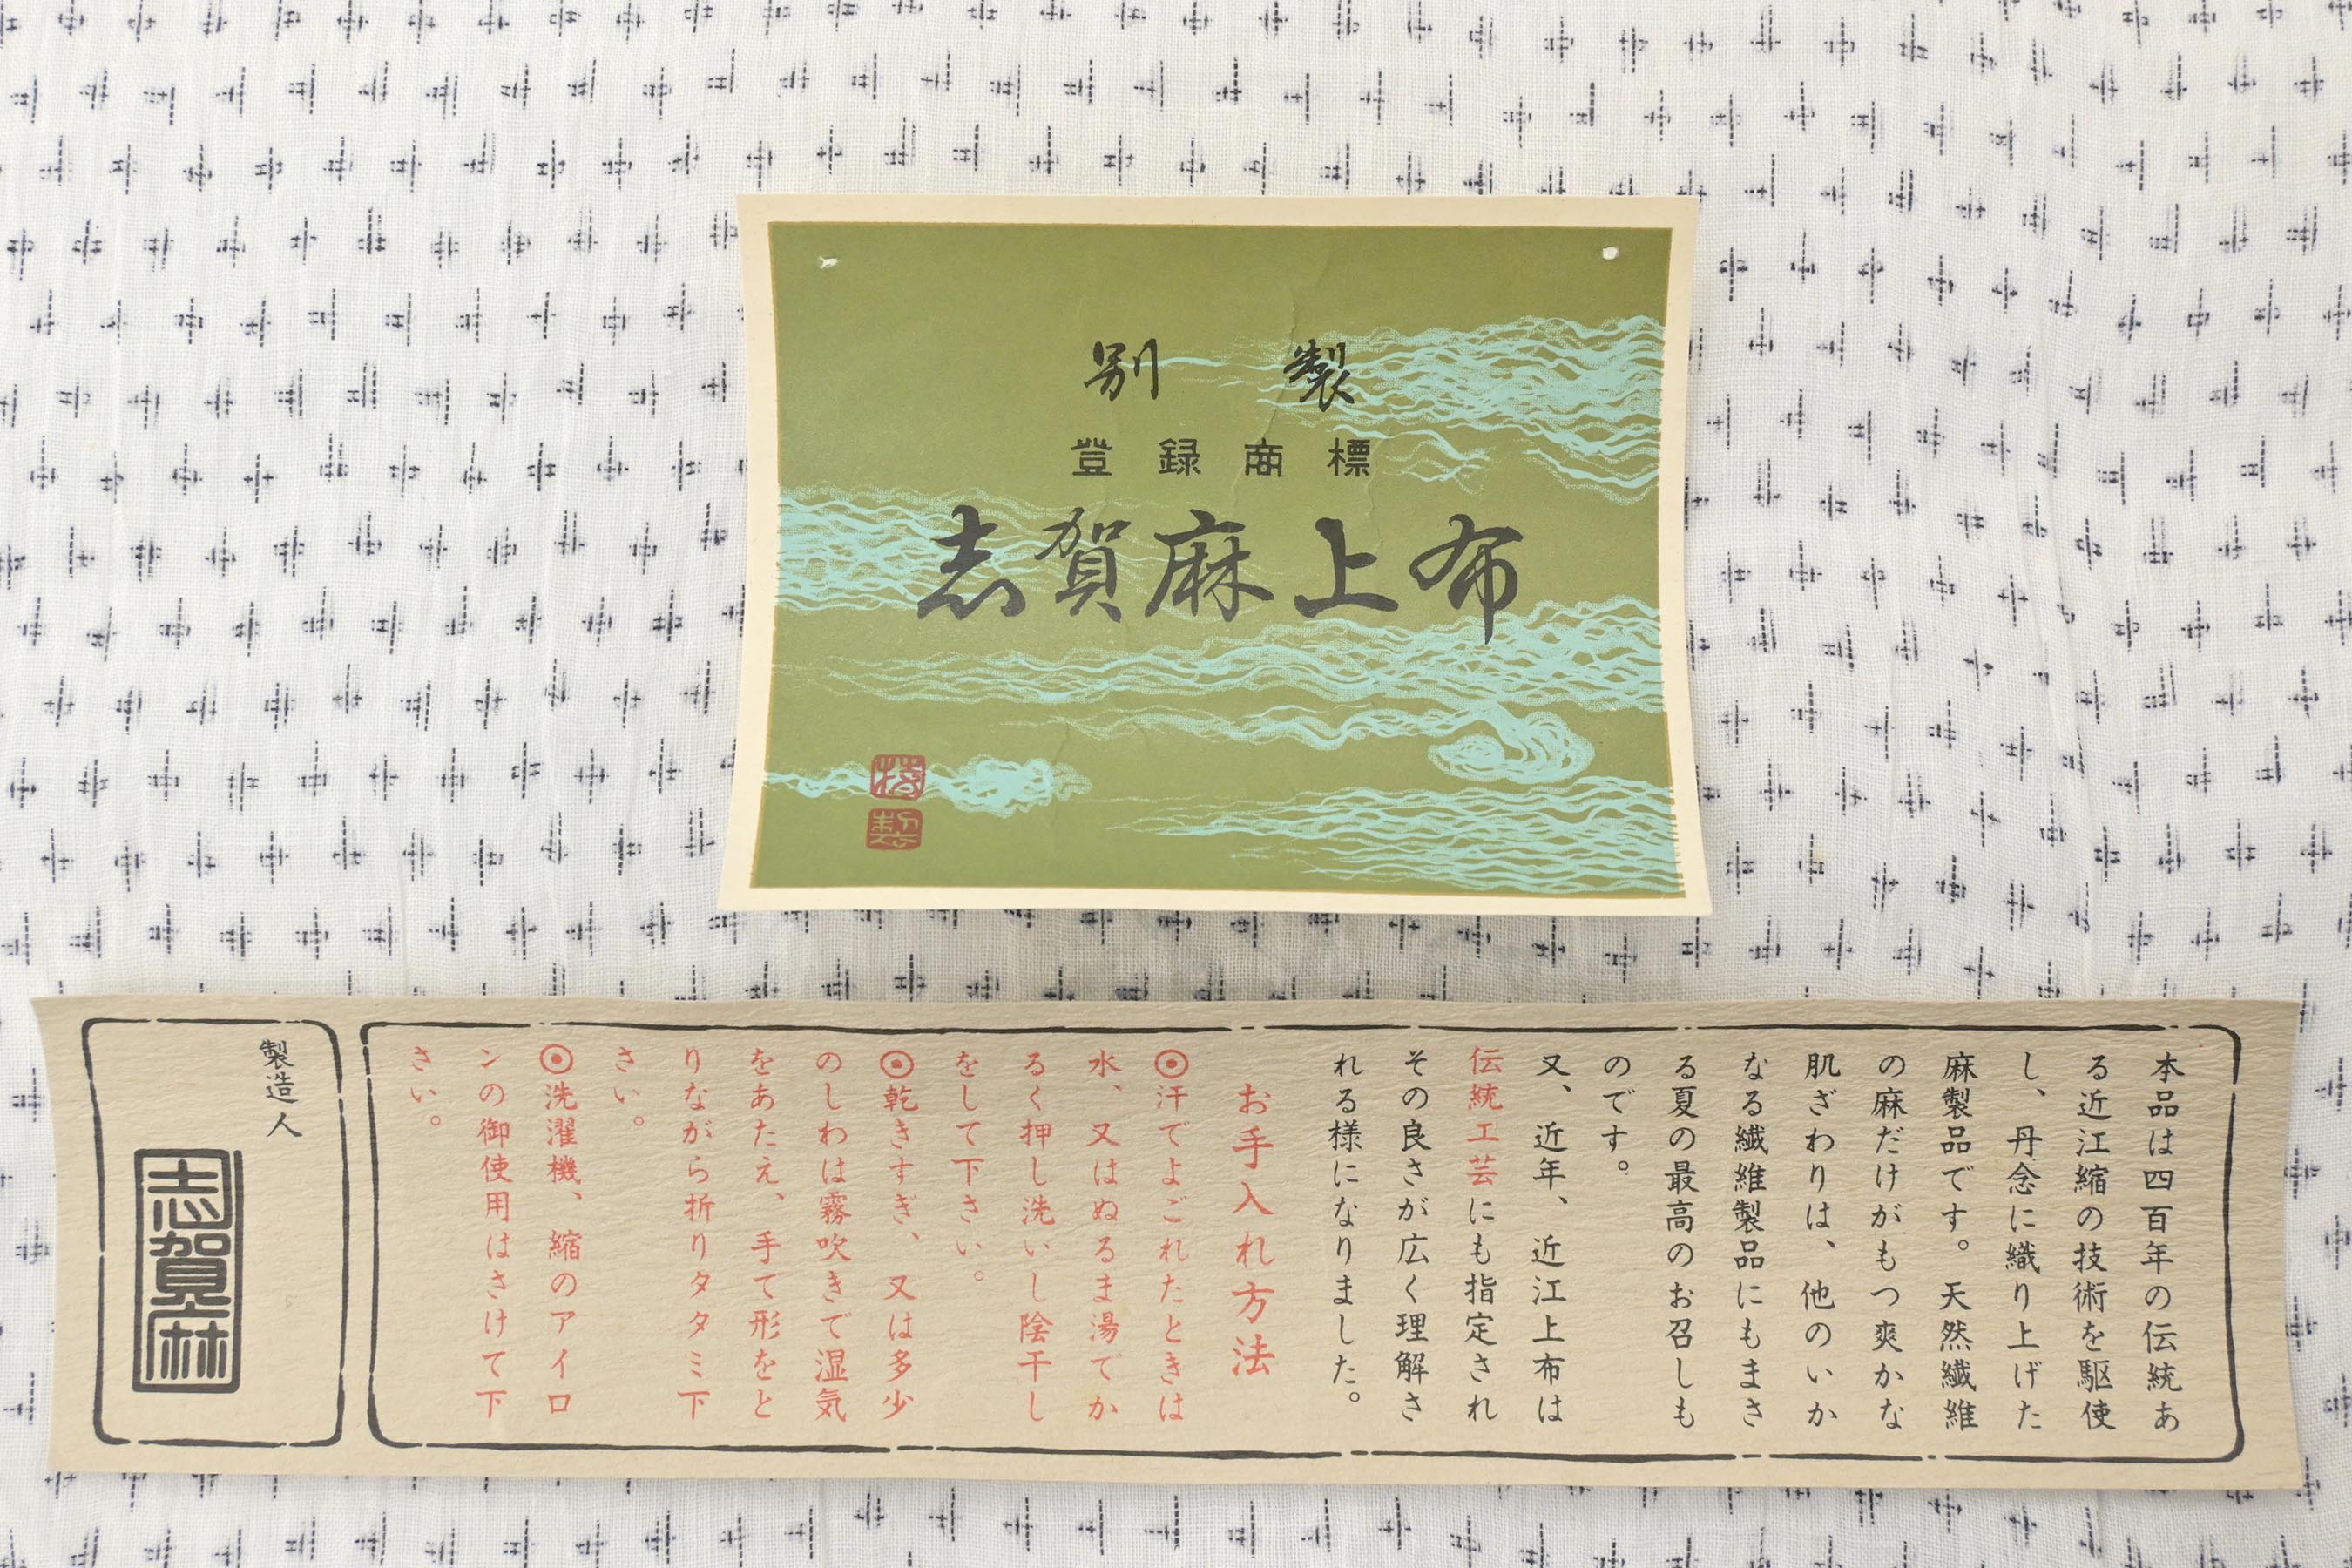 別製
登録商標
志賀麻上布
特
製
本品は四百年の伝統あ
る近江縮の技術を駆使
し、丹念に織り上げた
麻製品です。天然繊維
の麻だけがもつ爽かな
肌ざわりは、他のいか
なる繊維製品にもまさ
る夏の最高のお召しも
のです。
又、近年、近江上布は
伝統工芸にも指定され
その良さが広く理解さ
れる様になりました。
お手入れ方法
◉汗でよごれたときは
水、又はぬるま湯でか
るく押し洗いし陰干し
をして下さい。
◉乾きすぎ、又は多少
のしわは霧吹きで湿気
をあたえ、手で形をと
りながら折りタタミ下
さい。
◉洗濯機、縮のアイロ
ンの御使用はさけて下
さい。
製造人
志賀麻